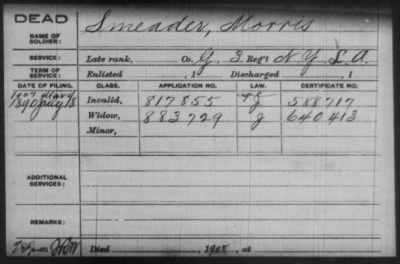 DEAD
NAME OF SOLDIER: Smeader, Morris
SERVICE: Late rank, Co. G, 3 Reg't N Y L A.
TERM OF SERVICE: Enlisted , 1 Discharged , 1
DATE OF FILING. CLASS. APPLICATION NO. LAW. CERTIFICATE NO.
1890 July 18 Invalid, 817855 588717
Widow, 883729 g 640413
Minor,
ADDITIONAL SERVICES:
REMARKS:
Died , 1908, at